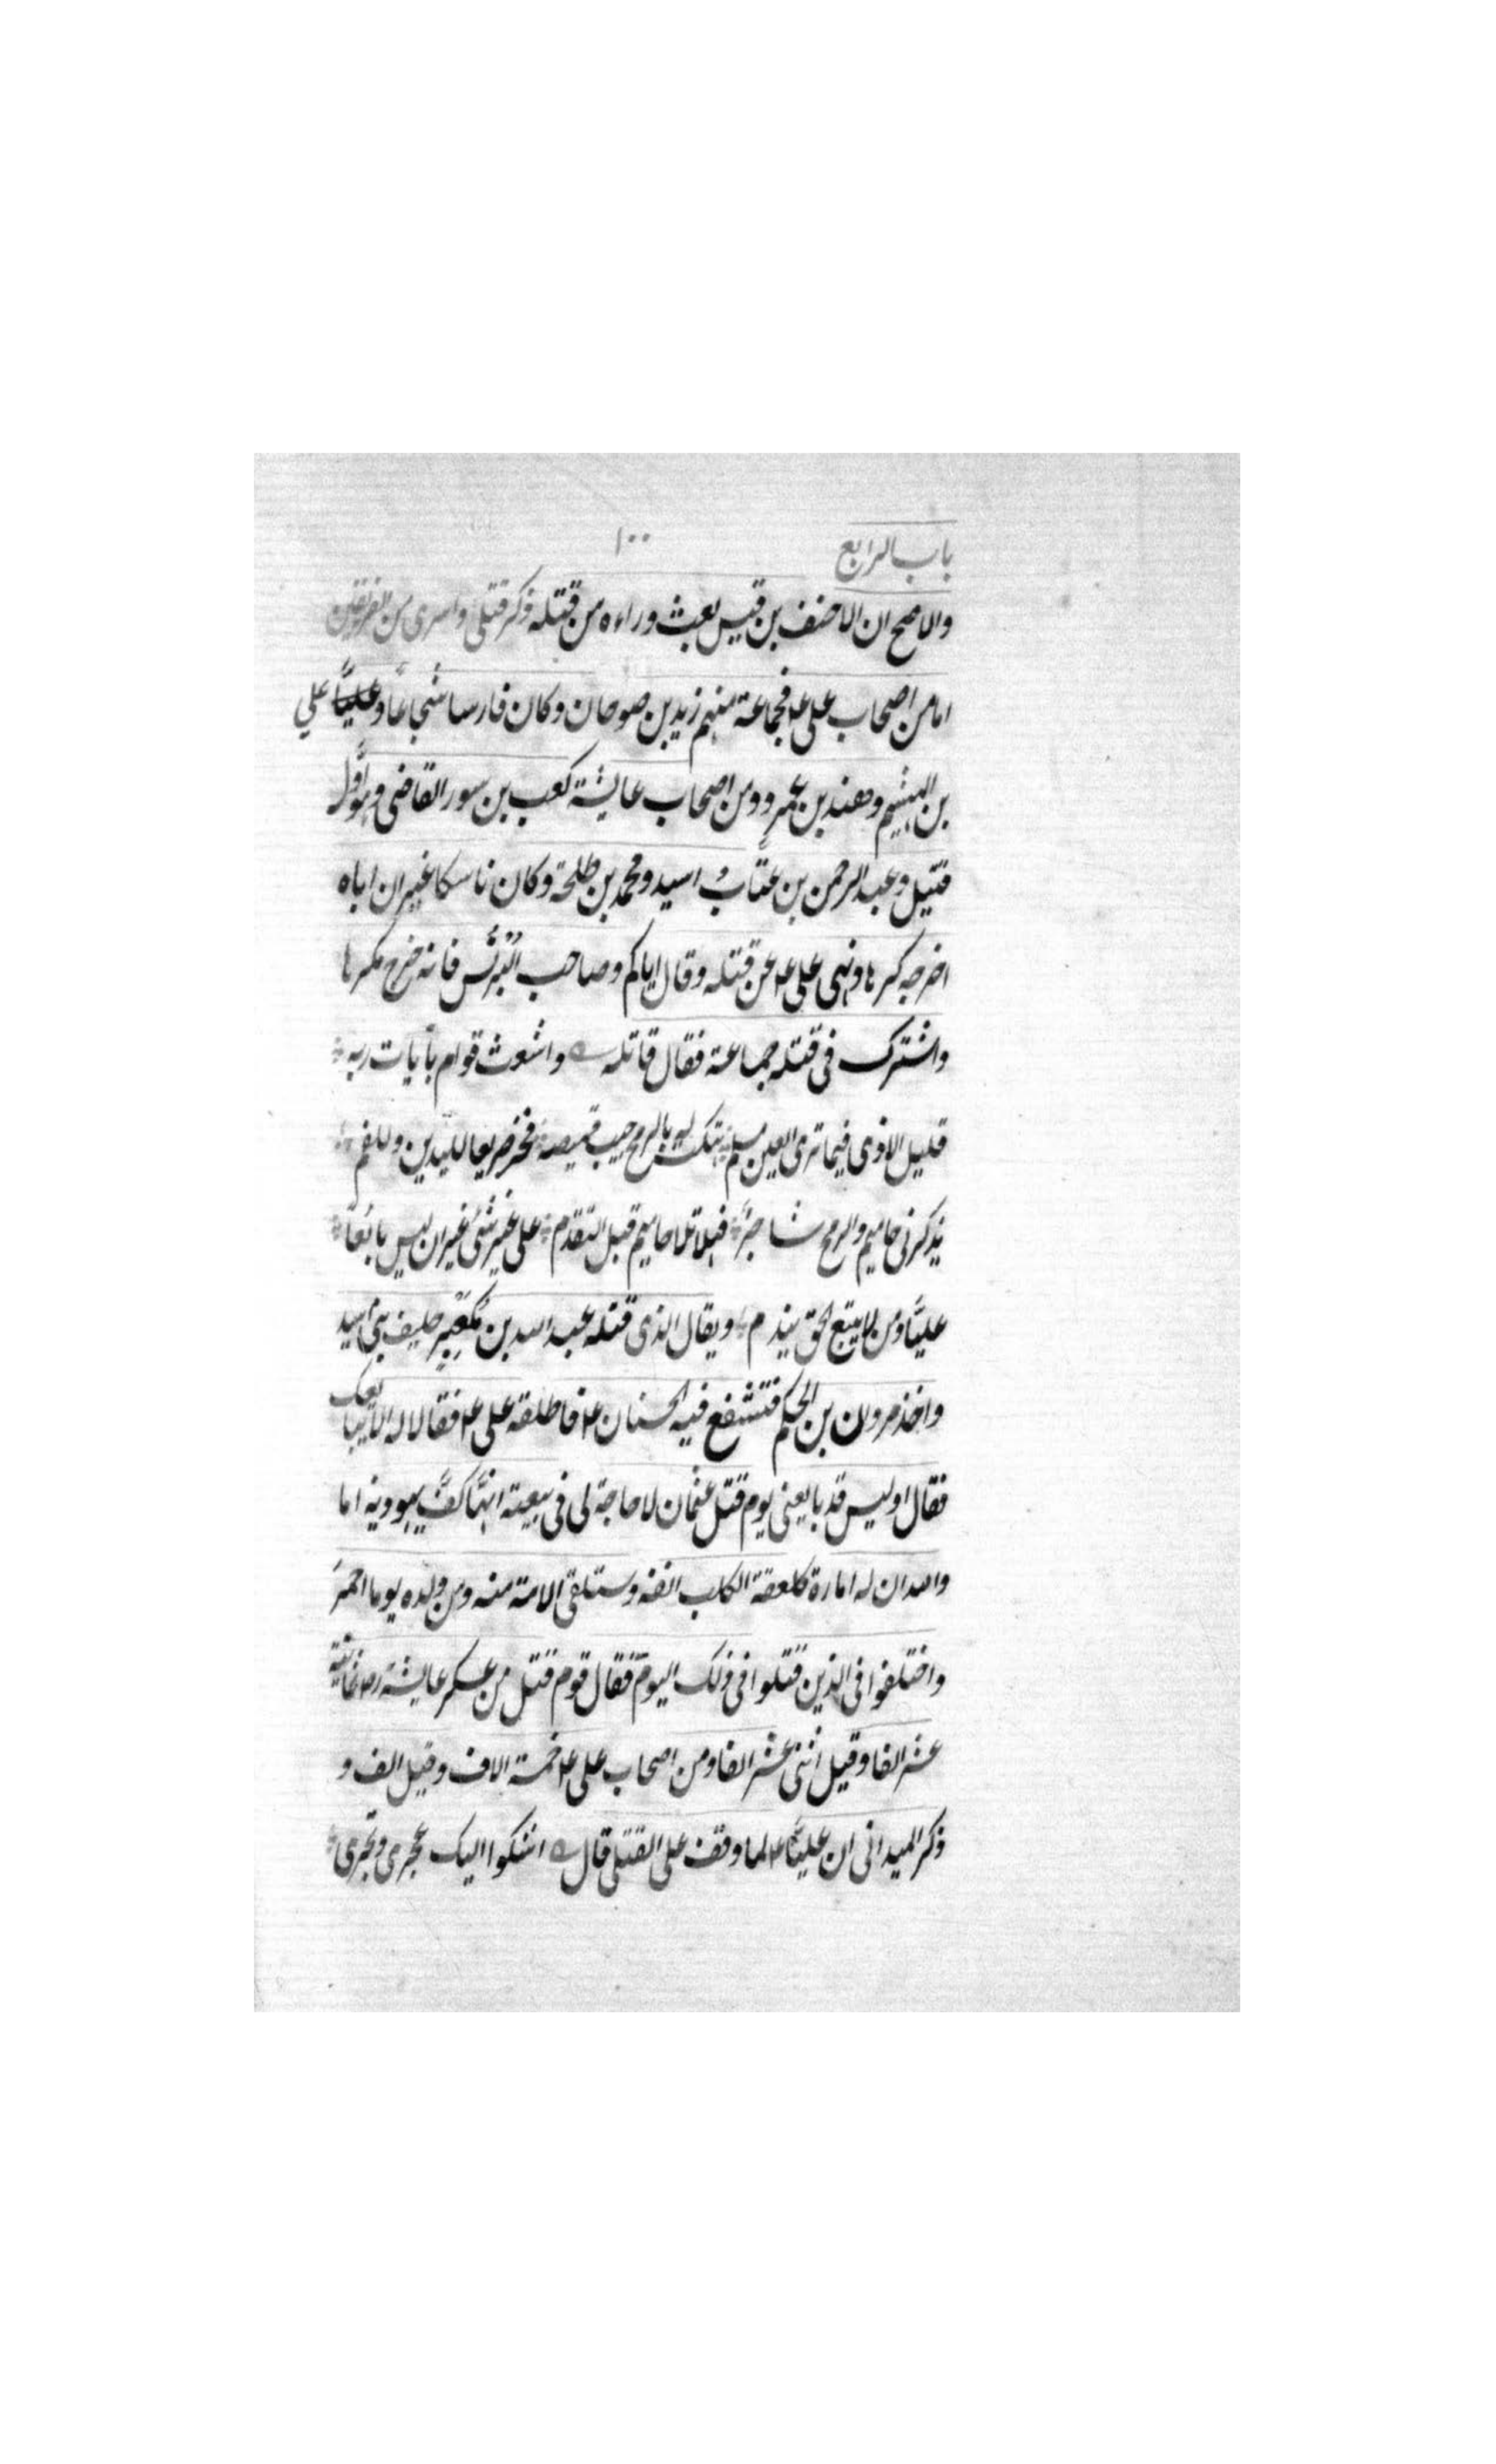 باب الرابع ١٠٠
والاصح ان الاحنف بن قيس بعث وراءه من قتله ذكر قتلى واسرى من الفريقين
اما من اصحاب على ع فجماعة منهم زيد بن صوحان وكان فارسا شجاعًا وعليًّا علي
بن الهيثم وهند بن عمرو ومن اصحاب عايشة كعب بن سور القاضى وهو اوّل
قتيل وعبد الرحمن بن عتّاب اسيد ومحمد بن طلحة وكان ناسكا غير ان اباه
اخرجه كرها ونهى على ع عن قتله وقال اياكم وصاحب البُرنُس فانه خرج مكرها
واشترك فى قتله جماعة فقال قاتله واشعث قوام بآيات ربه
قليل الاذى فيما ترى العين مسلم هتكت له بالرمح جيب قميصه فخر صريعا لليدين وللفم
يذكرنى حاميم والرمح شاجرٌ فهلا تلا حاميم قبل التقدم على غير شئ غير ان ليس تابعًا
عليًّا ومن لا يتبع الحق يندم ويقال الذى قتله عبد الله بن مُكَعْبِر حليف بنى اسيد
واخذ مروان بن الحكم فتشفع فيه الحسنان ع فاطلقه على ع فقالا له الا يبايعك
فقال اوليس قد بايعنى يوم قتل عثمان لا حاجة لى فى بيعته انها كفّ يهودية اما
والله ان له امارة كلعقة الكلب انفه وستلقى الامة منه ومن ولده يوما احمرَ
واختلفوا فى الذين قتلوا فى ذلك اليوم فقال قوم قتل من عسكر عايشة رض ثمانية
عشر الفا وقيل اثنى عشر الفا ومن اصحاب على ع خمسة الاف وقيل الف و
ذكر الميدانى ان عليًّا ع لما وقف على القتلى قال اشكوا اليك عجرى وبجرى